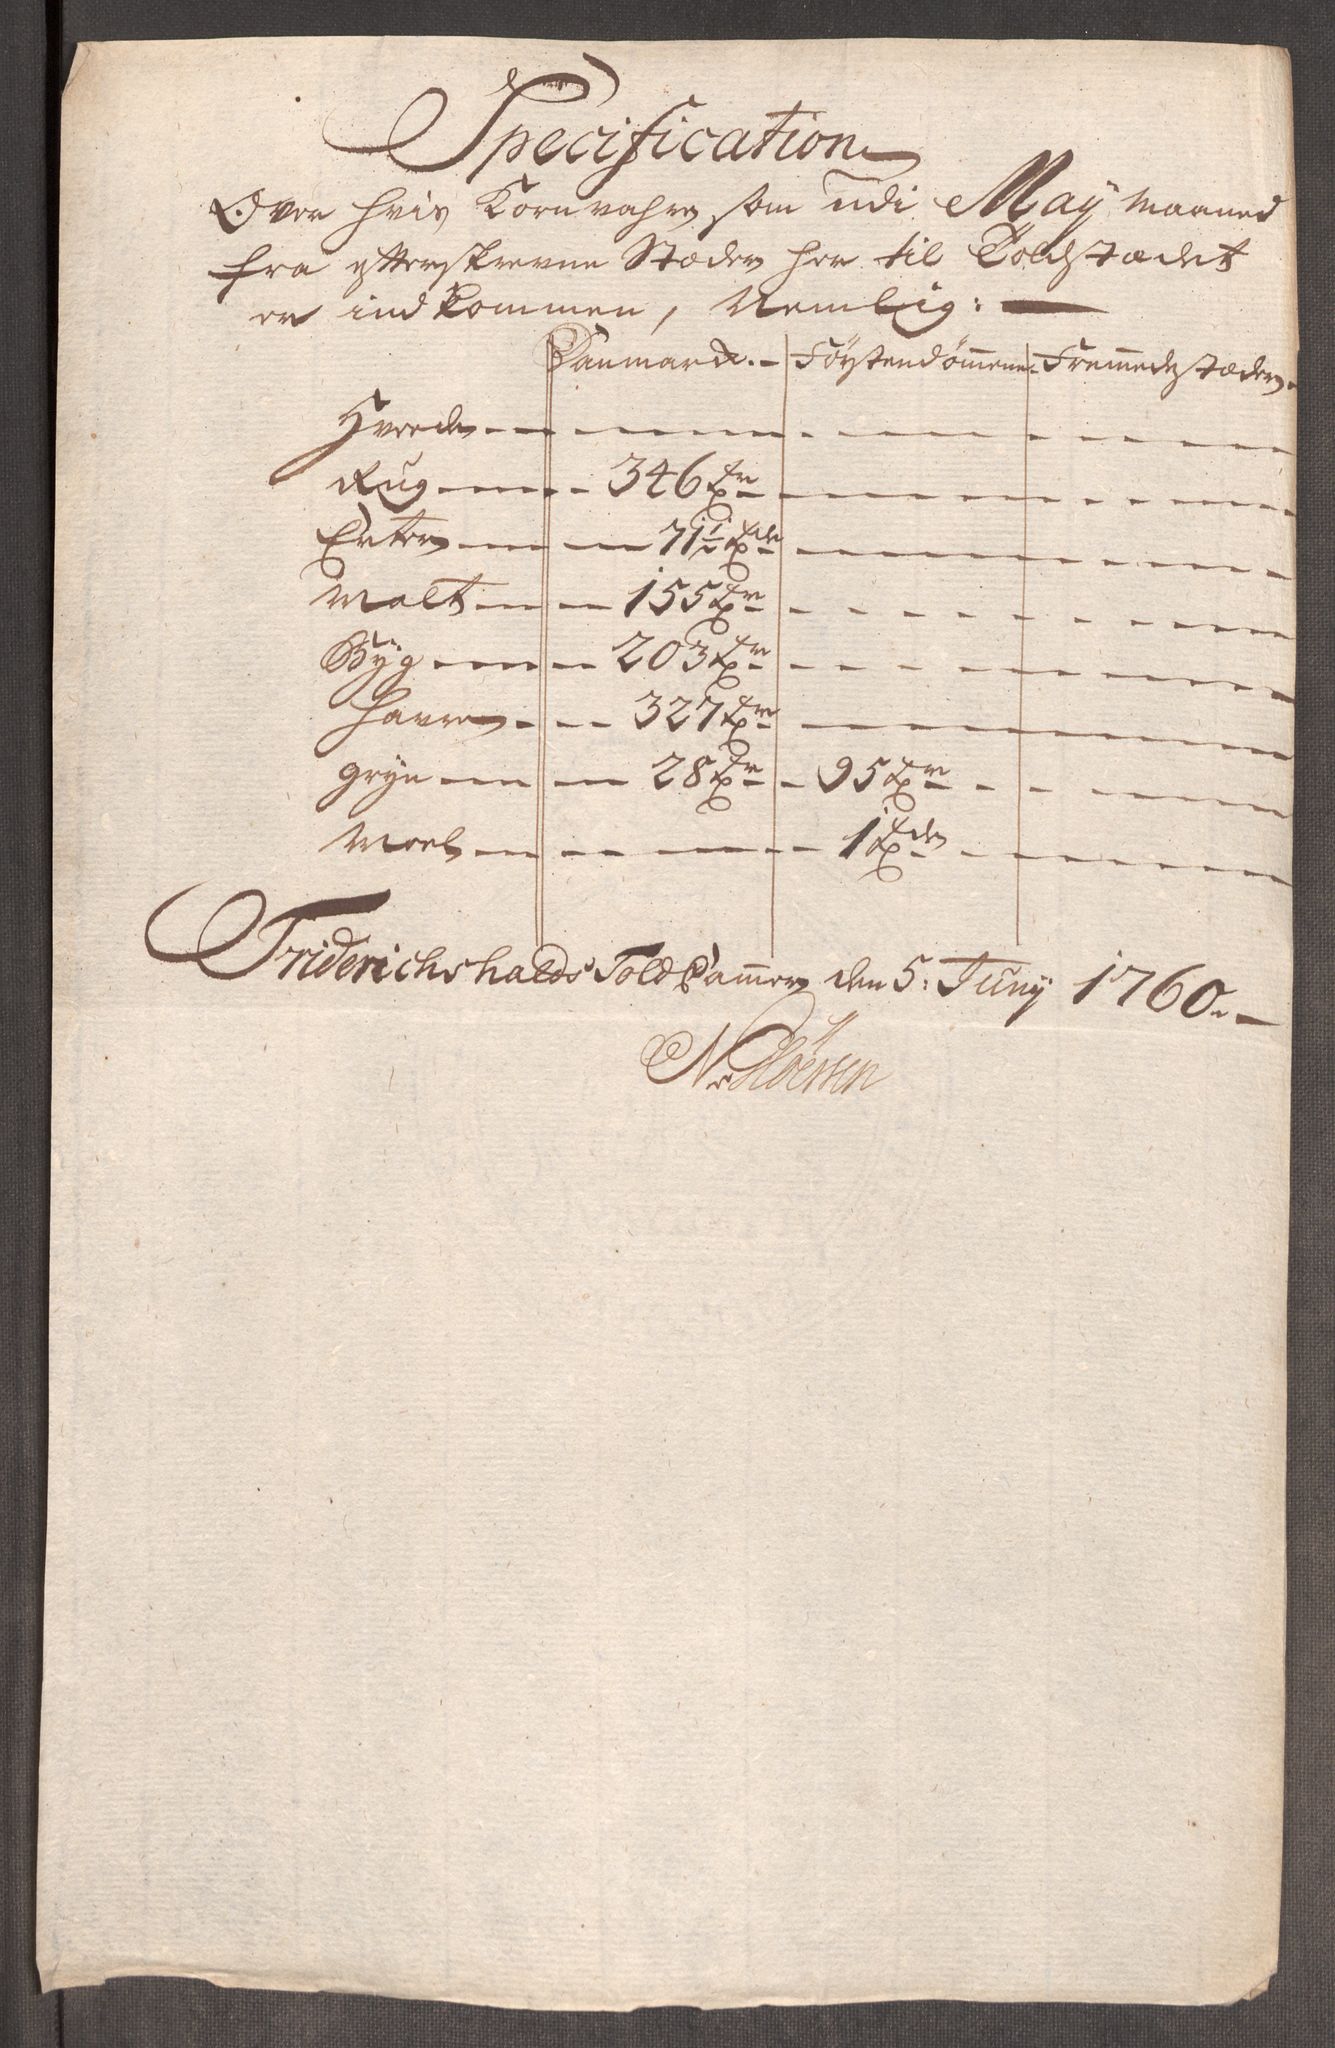 Specification
Over hvis Kornvahre, som udi May Maaned
fra efterskrevne Stæder her til Toldstædet
er indkommen, Nemlig:
Danmark. Förstendömmene Fremmede stæder
Hvede
Rug 346 Tr
Erter 71 1/2 Tde
Malt 155 Tr
Byg 203 Tr
Havre 327 Tr
Gryn 28 Tr 95 Tr
Meel 1 Tde
Friderichshalds Told Cammer den 5: Juny 1760.